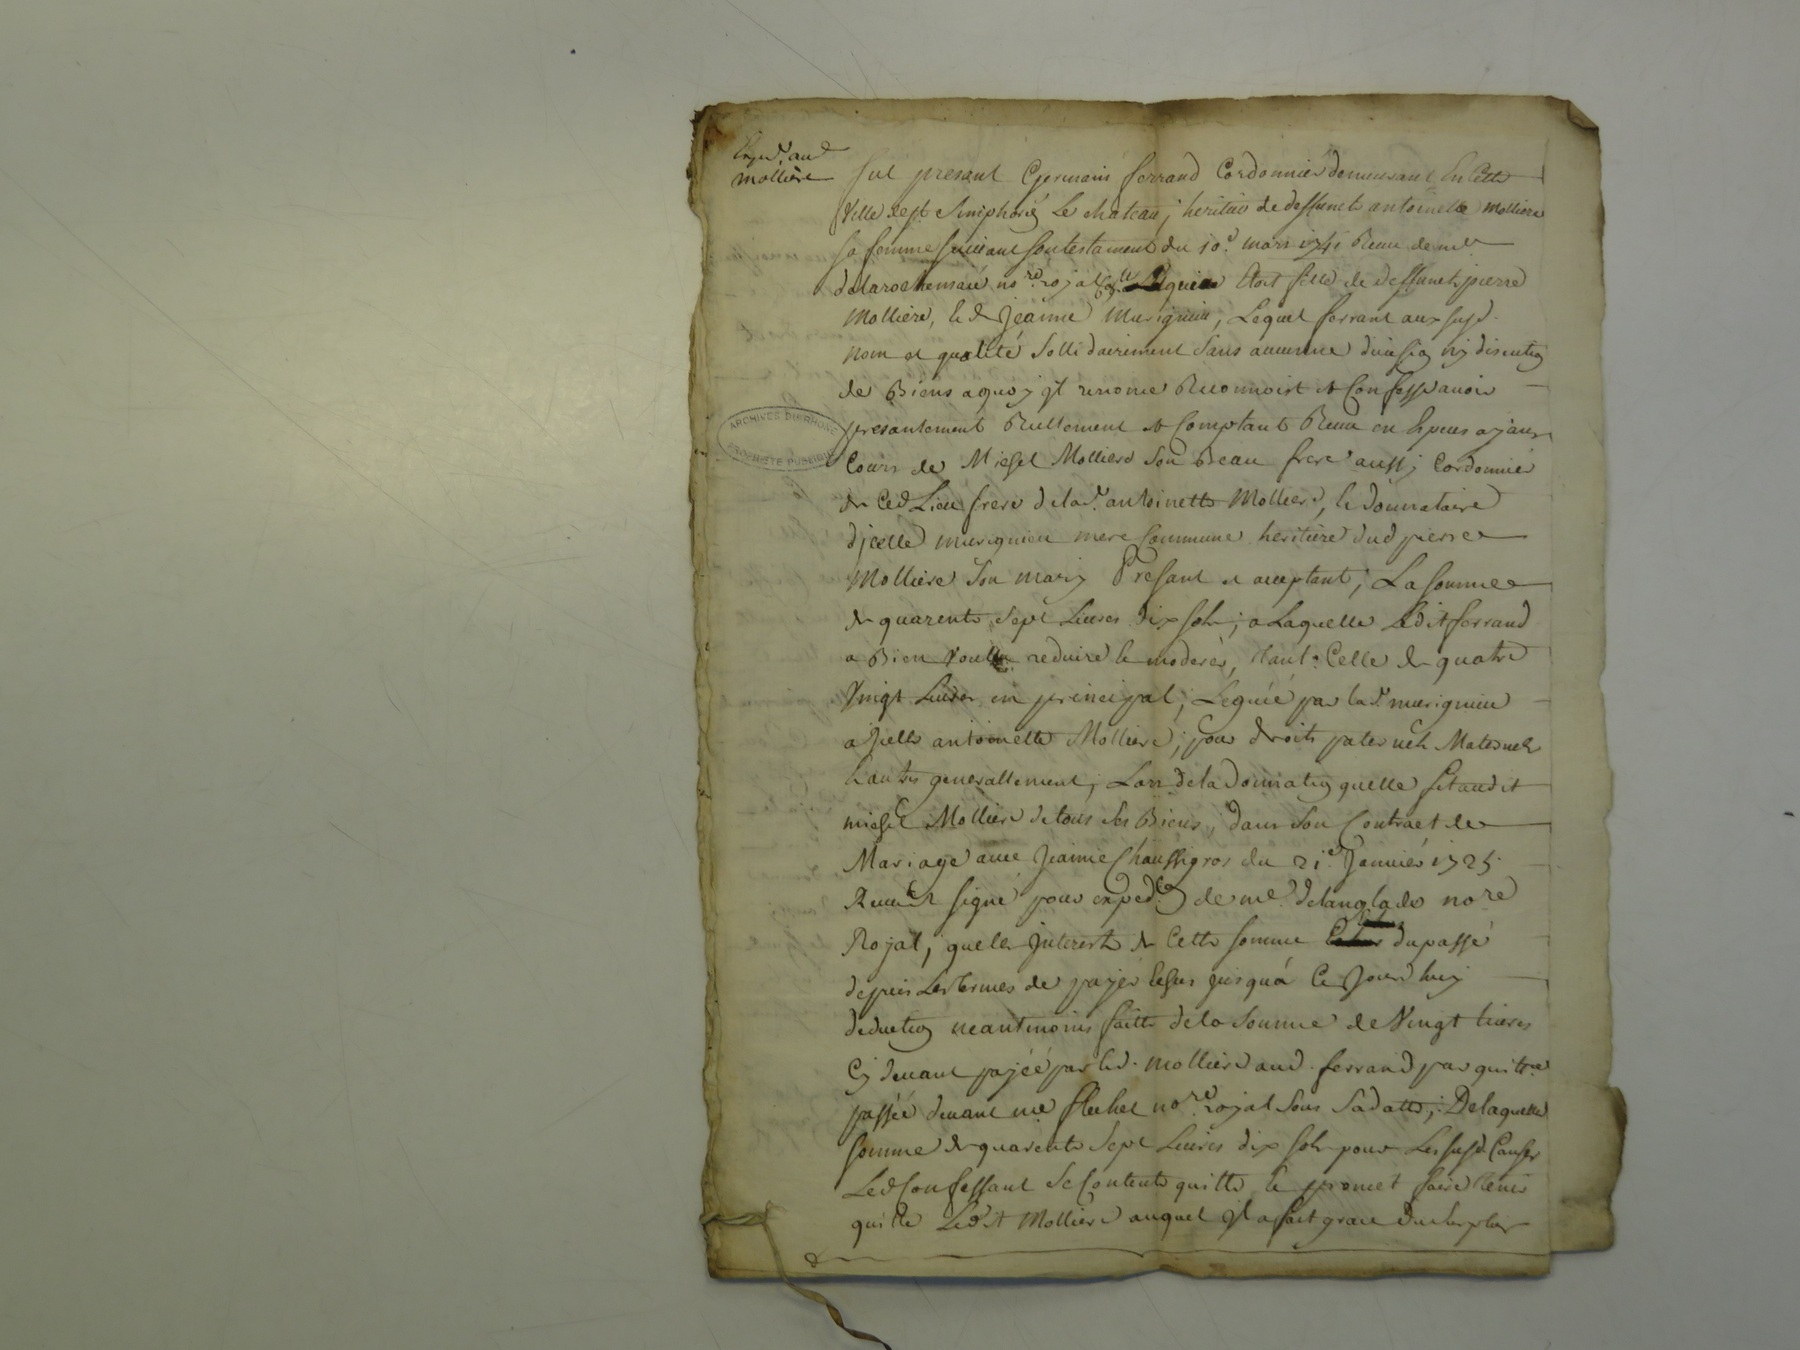 Expd. aud
molliere
fut present Germain ferrand Cordonnier demeurant En Cette
Ville de st Simphorien Le chateau, heritier de deffuncte antoinette molliere
sa femme suivant son testament du 10e mars 1741 Receu de me
delarochenoire no.re royal Laquelle Etoit fille de deffunct pierre
Molliere, & de Jeanne Murigneu, Lequel ferrant aux susd.
nom et qualité Sollidairement Sans aucunne division ny discution
de Biens a quoy Il renonce Reconnoist & Confesse avoir
presantement Reellement & Comptant Receu en Especes ayant
Cours de Michel Molliere Son Beau frere aussy Cordonnier
de Ced. Lieu frere delad. antoinette Molliere, & donnataire
d'jcelle murigneu mere Commune heritiere dud pierre
Molliere Son mary Presant et acceptant, La Somme
de quarente Sept Livres dix sols, a Laquelle Ledit ferrand
a Bien Voullu reduire & moderer, tant. Celle de quatre
Vingt Livres en principal, Leguée par lad. murigneu
a jcelle antoinette Molliere, pour droits paternels Maternels
& autres generallement, Lors dela Donnation quelle fit audit
michel Molliere de tous Ses Biens, dans Son Contract de
Mariage avec Jeanne Chaussigros du 21e Janvier 1725
Receu & signé pour expedon de me. delanglade no.re
Royal, que les Interests de Cette Somme du passé
depuis Les termes de payer Echus jusqu'a Ce Jourd'huy
deduction neantmoins faitte dela Somme de Vingt Livres
Cy devant payéé par led. molliere aud. ferrand par quitt.ce
passée devant me flechet no.re royal Sous Sa datte; De laquelle
Somme de quarente Sept Livres dix sols pour Les susd. Causes
Led Confessant Se Contente quitte & promet faire tenir
quitte Ledit Molliere auquel Il a fait grace du surplus
ARCHIVES DU RHONE
PROPRIETE PUBLIQUE